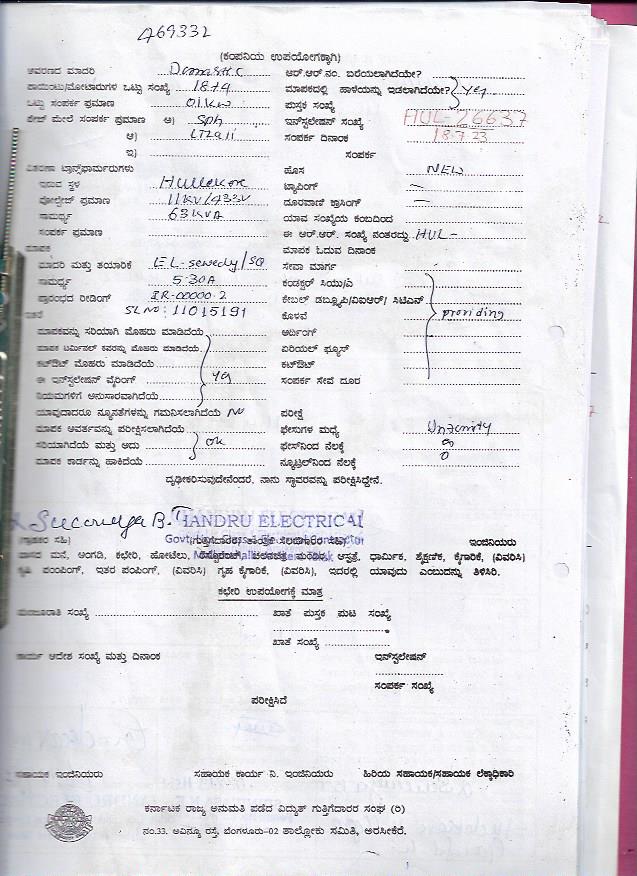 A69332
(ಕಂಪನಿಯ ಉಪಯೋಗಕ್ಕಾಗಿ)
ಆವರಣದ ಮಾದರಿ Domestic ಆರ್.ಆರ್.ನಂ. ಬರೆಯಲಾಗಿದೆಯೇ?
ಪಾಯಿಂಟು/ಮೋಟಾರುಗಳ ಒಟ್ಟು ಸಂಖ್ಯೆ ಮಾಪಕದಲ್ಲಿ ಹಾಳೆಯನ್ನು ಇಡಲಾಗಿದೆಯೇ? yes
ಒಟ್ಟು ಸಂಪರ್ಕ ಪ್ರಮಾಣ 01KW ಪುಸ್ತಕ ಸಂಖ್ಯೆ
ಫೇಜ್ ಮೇಲೆ ಸಂಪರ್ಕ ಪ್ರಮಾಣ ಅ) Sph ಇನ್‌ಸ್ಟಲೇಷನ್ ಸಂಖ್ಯೆ HUL-26637
ಆ) ಸಂಪರ್ಕ ದಿನಾಂಕ 18.7.23
ಇ) ಸಂಪರ್ಕ
ವಿತರಣಾ ಟ್ರಾನ್ಸ್‌ಫಾರ್ಮರುಗಳು ಹೊಸ NEW
ಇರುವ ಸ್ಥಳ Hullekere ಟ್ಯಾಪಿಂಗ್ —
ವೋಲ್ಟೇಜ್ ಪ್ರಮಾಣ 11KV/433V ದೂರವಾಣಿ ಕ್ರಾಸಿಂಗ್ —
ಸಾಮರ್ಥ್ಯ 63KVA ಯಾವ ಸಂಖ್ಯೆಯ ಕಂಬದಿಂದ
ಸಂಪರ್ಕ ಪ್ರಮಾಣ ಈ ಆರ್.ಆರ್. ಸಂಖ್ಯೆ ನಂತರದ್ದು HUL-
ಮಾಪಕ ಮಾಪಕ ಓದುವ ದಿನಾಂಕ
ಮಾದರಿ ಮತ್ತು ತಯಾರಿಕೆ EL-sewedy/SQ ಸೇವಾ ಮಾರ್ಗ
ಸಾಮರ್ಥ್ಯ 5-30A ಕಂಡಕ್ಟರ್ ಸಿಯು/ಎ
ಪ್ರಾರಂಭದ ರೀಡಿಂಗ್ IR-00000.2 ಕೇಬಲ್ ಡಬ್ಲ್ಯೂಪಿ/ವಿಐಆರ್/ ಸಿಟಿಎಸ್
SL NO: 11015191 ಕೊಳವೆ providing
ಮಾಪಕವನ್ನು ಸರಿಯಾಗಿ ಮೊಹರು ಮಾಡಿದೆಯೆ ಅರ್ದಿಂಗ್
ಮಾಪಕ ಟರ್ಮಿನಲ್ ಕವರನ್ನು ಮೊಹರು ಮಾಡಿದೆಯೆ ಏರಿಯಲ್ ಫ್ಯೂಸ್
ಕಟ್‌ಔಟ್ ಮೊಹರು ಮಾಡಿದೆಯೆ ಕಟ್‌ಔಟ್
ಈ ಇನ್‌ಸ್ಟಲೇಷನ್ ವೈರಿಂಗ್ yes ಸಂಪರ್ಕ ಸೇವೆ ದೂರ
ನಿಯಮಗಳಿಗೆ ಅನುಸಾರವಾಗಿದೆಯೆ
ಯಾವುದಾದರೂ ನ್ಯೂನತೆಗಳನ್ನು ಗಮನಿಸಲಾಗಿದೆಯೆ No ಪರೀಕ್ಷೆ
ಮಾಪಕ ಆವರ್ತವನ್ನು ಪರೀಕ್ಷಿಸಲಾಗಿದೆಯೆ ಫೇಸುಗಳ ಮಧ್ಯೆ
ಸರಿಯಾಗಿದೆಯೆ ಮತ್ತು ಅದು ok ಫೇಸ್‌ನಿಂದ ನೆಲಕ್ಕೆ
ಮಾಪಕ ಕಾರ್ಡನ್ನು ಹಾಕಿದೆಯೆ ನ್ಯೂಟ್ರಲ್‌ನಿಂದ ನೆಲಕ್ಕೆ
ದೃಢೀಕರಿಸುವುದೇನೆಂದರೆ, ನಾನು ಸ್ಥಾವರವನ್ನು ಪರೀಕ್ಷಿಸಿದ್ದೇನೆ.
HANDRU ELECTRICAL
ಇಂಜಿನಿಯರು
ಮನೆ, ಅಂಗಡಿ, ಕಛೇರಿ, ಹೋಟೆಲು, ಆಸ್ಪತ್ರೆ, ಧಾರ್ಮಿಕ, ಶೈಕ್ಷಣಿಕ, ಕೈಗಾರಿಕೆ, (ವಿವರಿಸಿ)
ಕೃಷಿ ಪಂಪಿಂಗ್, ಇತರ ಪಂಪಿಂಗ್, (ವಿವರಿಸಿ) ಗೃಹ ಕೈಗಾರಿಕೆ, (ವಿವರಿಸಿ), ಇದರಲ್ಲಿ ಯಾವುದು ಎಂಬುದನ್ನು ತಿಳಿಸಿರಿ.
ಕಛೇರಿ ಉಪಯೋಗಕ್ಕೆ ಮಾತ್ರ
ಮಂಜೂರಾತಿ ಸಂಖ್ಯೆ ಖಾತೆ ಪುಸ್ತಕ ಪುಟ ಸಂಖ್ಯೆ
ಖಾತೆ ಸಂಖ್ಯೆ
ಕಾರ್ಯ ಆದೇಶ ಸಂಖ್ಯೆ ಮತ್ತು ದಿನಾಂಕ ಇನ್‌ಸ್ಟಲೇಷನ್
ಸಂಪರ್ಕ ಸಂಖ್ಯೆ
ಪರೀಕ್ಷಿಸಿದೆ
ಸಹಾಯಕ ಇಂಜಿನಿಯರು ಸಹಾಯಕ ಕಾರ್ಯ ನಿ. ಇಂಜಿನಿಯರು ಹಿರಿಯ ಸಹಾಯಕ/ಸಹಾಯಕ ಲೆಕ್ಕಾಧಿಕಾರಿ
ಕರ್ನಾಟಕ ರಾಜ್ಯ ಅನುಮತಿ ಪಡೆದ ವಿದ್ಯುತ್ ಗುತ್ತಿಗೆದಾರರ ಸಂಘ (ರಿ)
ನಂ.33. ಅವಿನ್ಯೂ ರಸ್ತೆ, ಬೆಂಗಳೂರು-02 ತಾಲ್ಲೋಕು ಸಮಿತಿ, ಅರಸೀಕೆರೆ.